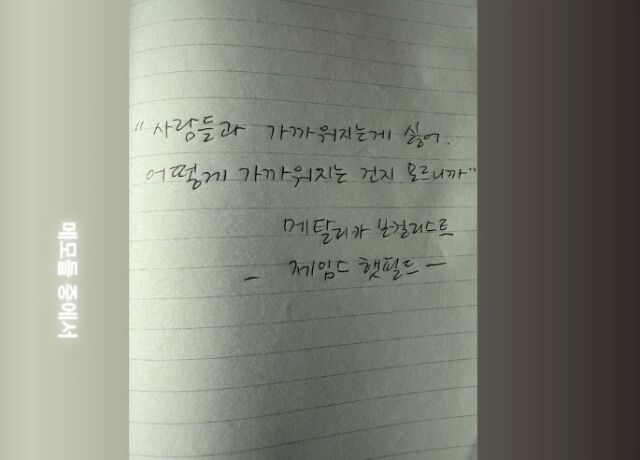 "사람들과 가까워지는게 싫어.
어떻게 가까워지는 건지 모르니까"
메탈리카 보컬리스트
- 제임스 햇필드 -
메모들 중에서